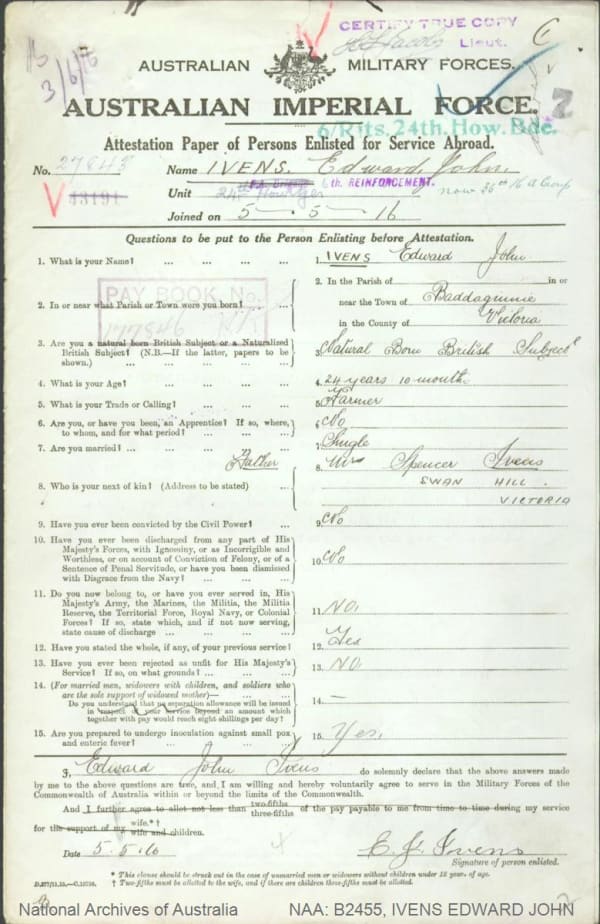 CERTIFY TRUE COPY
Lieut.
3/6/16
AUSTRALIAN MILITARY FORCES.
AUSTRALIAN IMPERIAL FORCE.
6/Rfts. 24th. How. Bde.
Attestation Paper of Persons Enlisted for Service Abroad.
No. 27843 Name IVENS. Edward John
33191 Unit 6th REINFORCEMENT.
Joined on 5 - 5 - 16
Questions to be put to the Person Enlisting before Attestation.
1. What is your Name? ... ... ... ... 1. IVENS Edward John
PAY BOOK No.
2. In or near what Parish or Town were you born? ... 2. In the Parish of in or
near the Town of Baddaginnie
in the County of Victoria
3. Are you a natural born British Subject or a Naturalized
British Subject? (N.B.—If the latter, papers to be
shown.) ... ... ... ... 3. Natural Born British Subject
4. What is your Age? ... ... ... ... 4. 24 years 10 months
5. What is your Trade or Calling? ... ... ... 5. Farmer
6. Are you, or have you been, an Apprentice? If so, where,
to whom, and for what period? ... ... ... 6. No
7. Are you married? ... ... ... ... 7. Single
Father
8. Who is your next of kin? (Address to be stated) ... 8. Mr Spencer Ivens
SWAN HILL.
VICTORIA
9. Have you ever been convicted by the Civil Power? ... 9. No
10. Have you ever been discharged from any part of His
Majesty's Forces, with Ignominy, or as Incorrigible and
Worthless, or on account of Conviction of Felony, or of a
Sentence of Penal Servitude, or have you been dismissed
with Disgrace from the Navy? ... ... ... 10. No
11. Do you now belong to, or have you ever served in, His
Majesty's Army, the Marines, the Militia, the Militia
Reserve, the Territorial Force, Royal Navy, or Colonial
Forces? If so, state which, and if not now serving,
state cause of discharge ... ... ... ... 11. NO.
12. Have you stated the whole, if any, of your previous service? 12. Yes
13. Have you ever been rejected as unfit for His Majesty's
Service? If so, on what grounds? ... ... ... 13. NO
14. (For married men, widowers with children, and soldiers who
are the sole support of widowed mother)—
Do you understand that no separation allowance will be issued
in respect of your service beyond an amount which
together with pay would reach eight shillings per day? 14. —
15. Are you prepared to undergo inoculation against small pox
and enteric fever? ... ... ... ... 15. Yes.
I, Edward John Ivens do solemnly declare that the above answers made
by me to the above questions are true, and I am willing and hereby voluntarily agree to serve in the Military Forces of the
Commonwealth of Australia within or beyond the limits of the Commonwealth.
And I further agree to allot not less than two-fifths three-fifths of the pay payable to me from time to time during my service
for the support of my wife.*† wife and children.
Date 5.5.16 E. J. Ivens
Signature of person enlisted.
* This clause should be struck out in the case of unmarried men or widowers without children under 18 year of age.
† Two-fifths must be allotted to the wife, and if there are children three-fifths must be allotted.
National Archives of Australia NAA: B2455, IVENS EDWARD JOHN